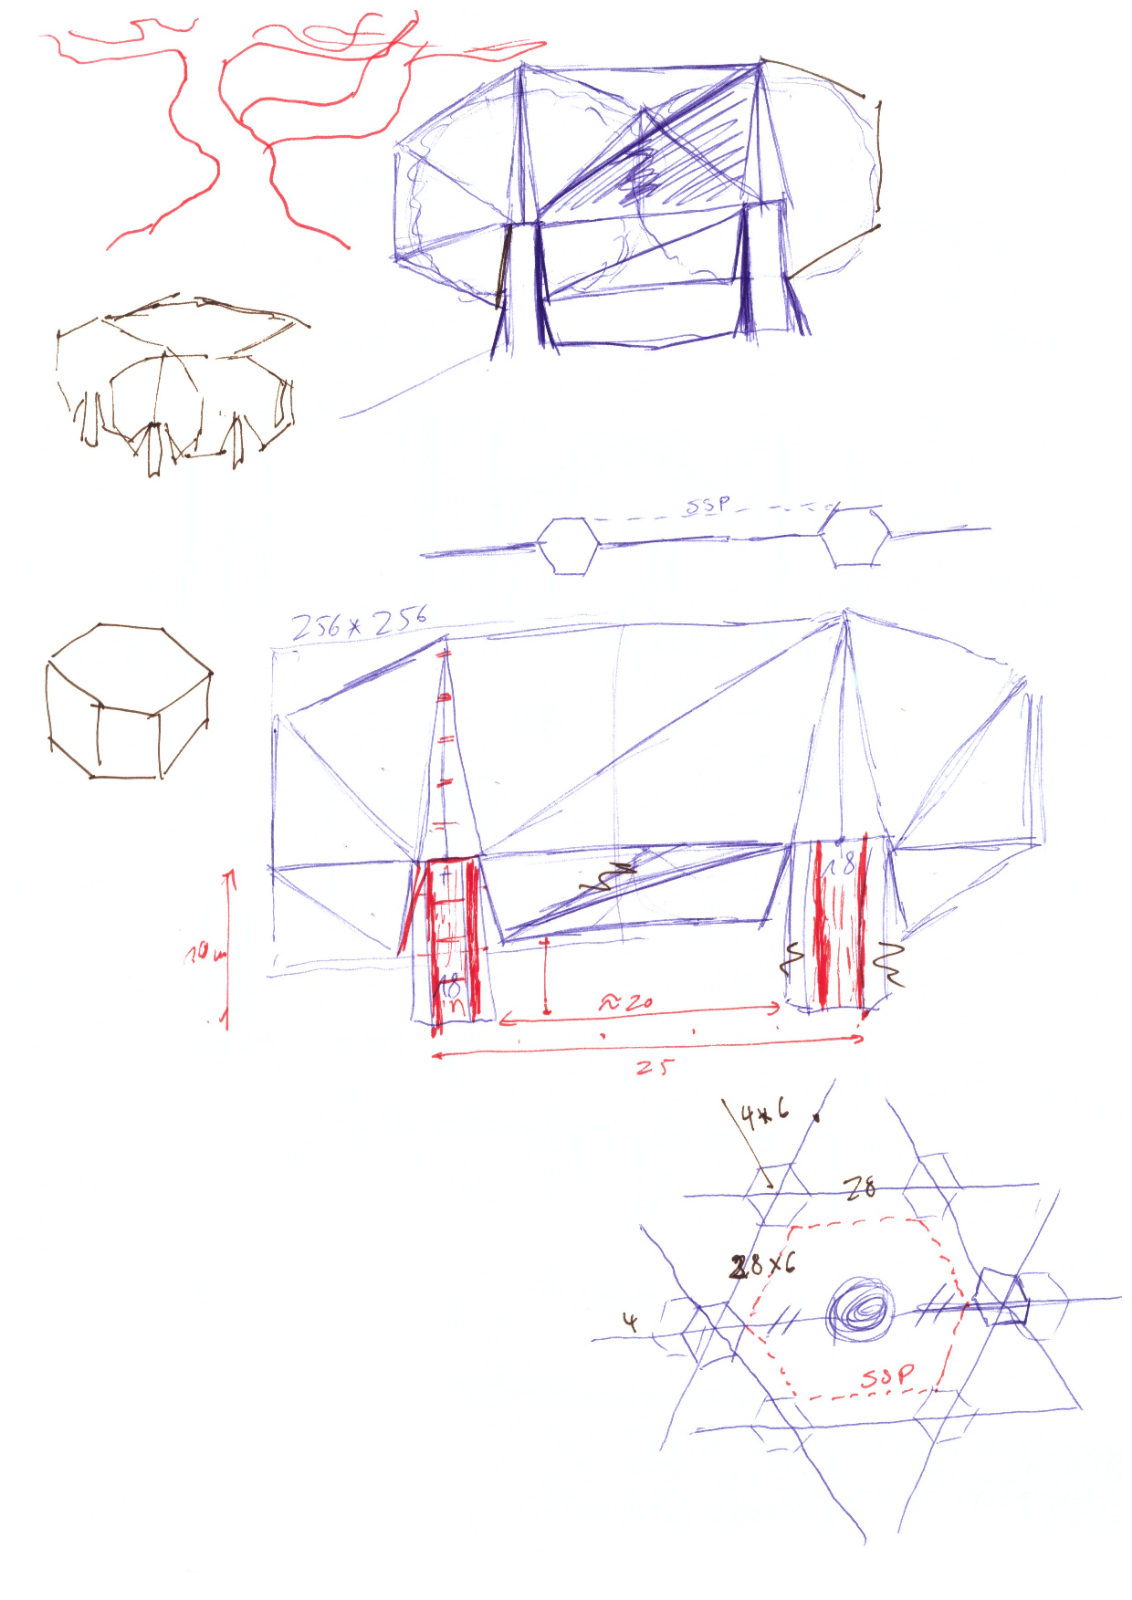 SSP
256*256
18
10m
18
n
≈20
25
4*6
28
28x6
4
SSP